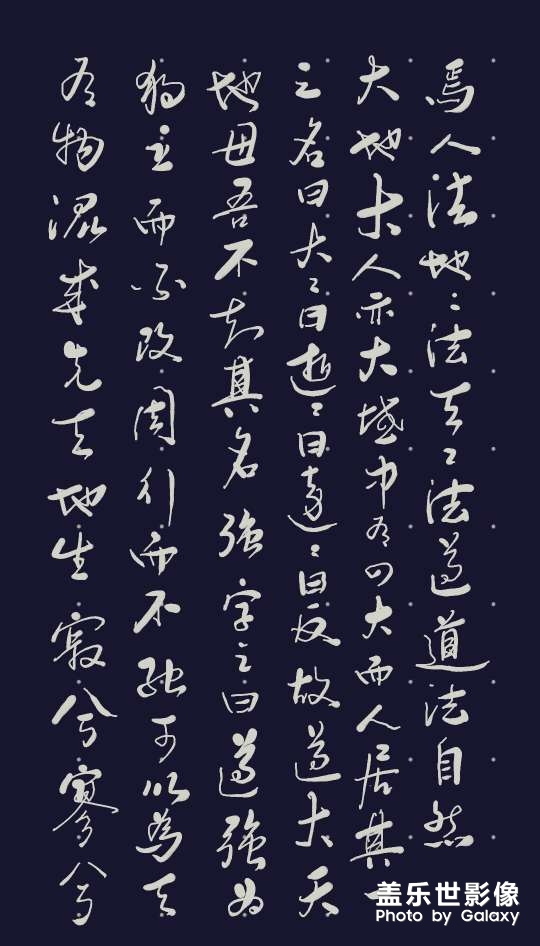 有物混成先天地生寂兮寥兮
独立而不改周行而不殆可以為天
地母吾不知其名強字之曰道強為
之名曰大々曰逝々曰遠々曰反故道大天
大地大人亦大域中有四大而人居其一
焉人法地々法天々法道道法自然
盖乐世影像
Photo by Galaxy